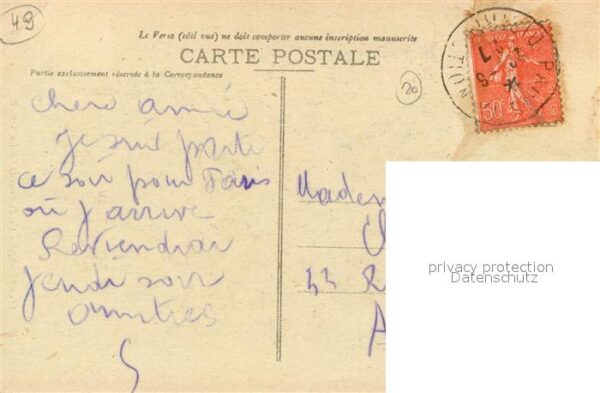 49
Le Verso (côté vue) ne doit comporter aucune inscription manuscrite
CARTE POSTALE
Partie exclusivement réservée à la Correspondance
20
50c
chere amie
je suis parti
ce soir pour Paris
où j'arrive
Reviendrai
jeudi soir
amities
33 R
privacy protection
Datenschutz